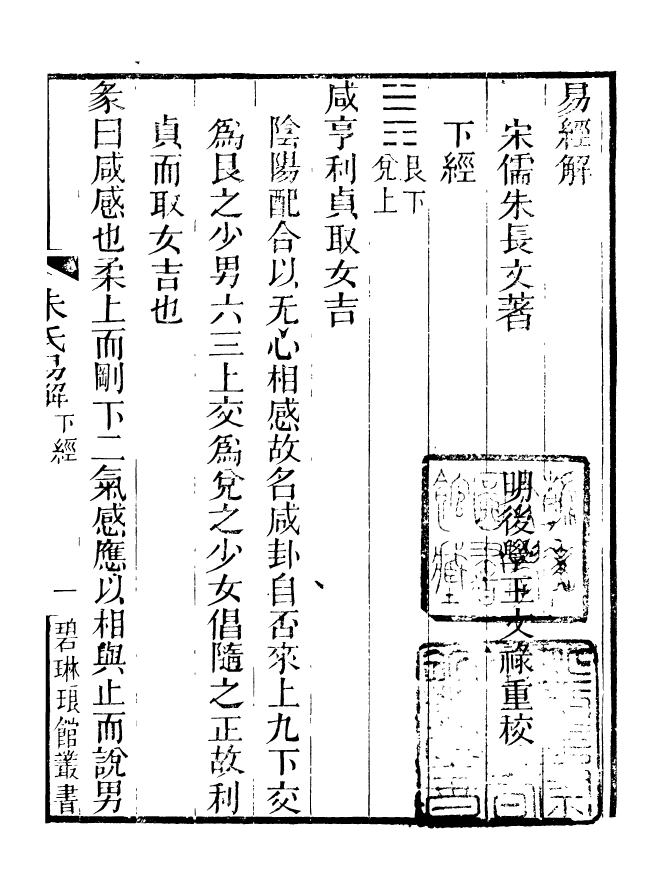 易經解
宋儒朱長文著
明後學王文祿重校
下經
䷞艮下
兌上
咸亨利貞取女吉
陰陽配合以无心相感故名咸卦自否來上九下交
爲艮之少男六三上交爲兌之少女倡隨之正故利
貞而取女吉也
彖曰咸感也柔上而剛下二氣感應以相與止而說男
朱氏易解 下經 一 碧琳琅館叢書